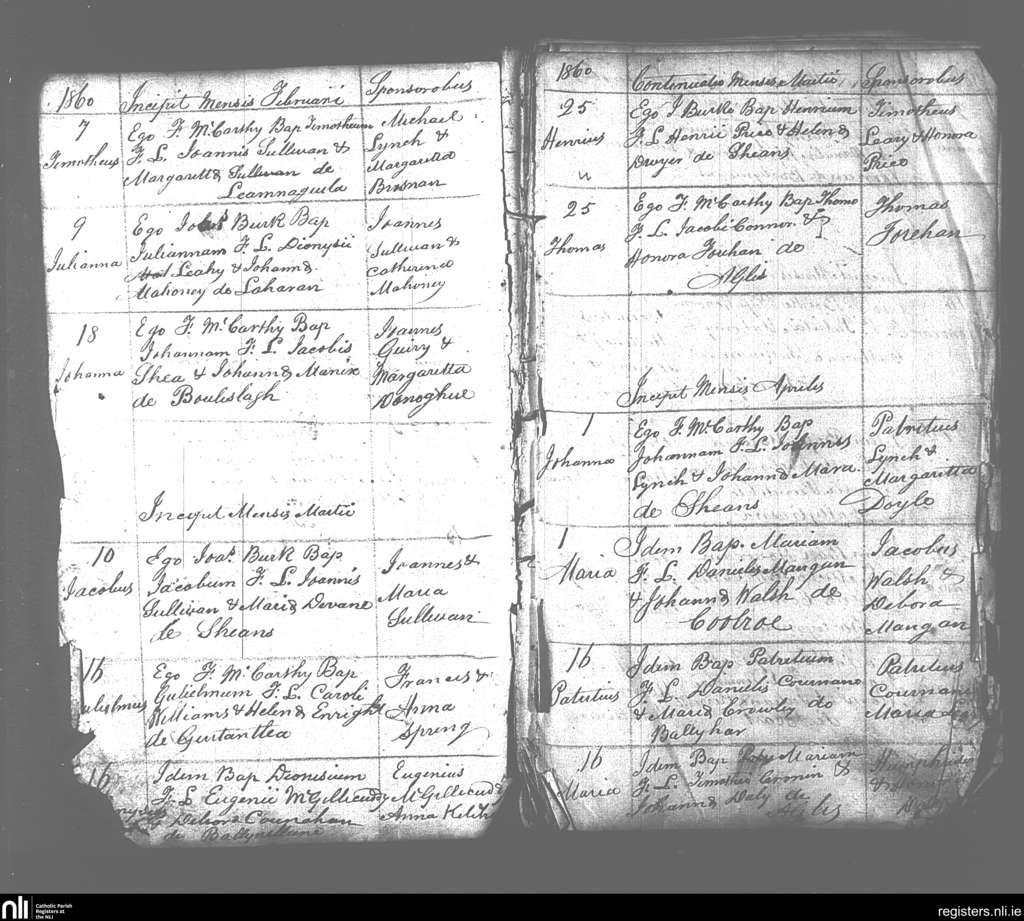 1860 Incipit Mensis Februarii Sponsorobus
7 Ego F. McCarthy Bap Timotheum Michael
Timotheus F. L. Joannis Sullivan & Lynch &
Margaritta Sullivan de Margaritta
Leamnaguila Brosnan
9 Ego Burk Bap Joannes
Juliannam F. L. Dionysii Sullivan &
Julianna Leahy & Johanna Catherina
Mahoney de Laharan Mahoney
18 Ego F. McCarthy Bap Joannes
Johannam F. L. Jacobis Guiry &
Johanna Shea & Johanna Margaritta
de Donoghue
Incipit Mensis Martii
10 Ego Joas Burk Bap Joannes &
Jacobus Jacobum F. L. Joannis Maria
Sullivan & Maria Devane Sullivan
de Sheans
16 Ego F. McCarthy Bap Francis &
Gulielmum F. L. Caroli Anna
Williams & Helena Enright Spring
de
16 Idem Bap Dionisium Eugenius
F. L. Eugenii McGillicuddy McGillicuddy
Counahan Anna
de
1860 Continuatio Mensis Martii Sponsorobus
25 Ego J Burke Bap Henrium Timotheus
Henrius F. L. Henrii Price & Helena Leary & Honora
Dwyer de Sheans Price
25 Ego F. McCarthy Bap Thoma Thomas
Thomas F. L. Jacobi Connor & Forehan
Honora Forehan de
Agles
Incipit Mensis Aprilis
1 Ego F. McCarthy Bap Patritius
Johanna Johannam F. L. Joannes Lynch &
Lynch & Johanna Mara Margaritta
de Sheans Doyle
1 Idem Bap. Mariam Jacobus
Maria F. L. Danielis Mangan Walsh &
& Johanna Walsh de Debora
Coolroe Mangan
16 Idem Bap Patritium Patritius
Patritius F. L. Danielis Cournane Cournane
& Maria Crowley de Maria
Ballyhar
16 Idem Bap Mariam
Maria F. L. Timothii Cronin &
Johanna Daly de Agles
nli Catholic Parish
Registers at
the NLI
registers.nli.ie